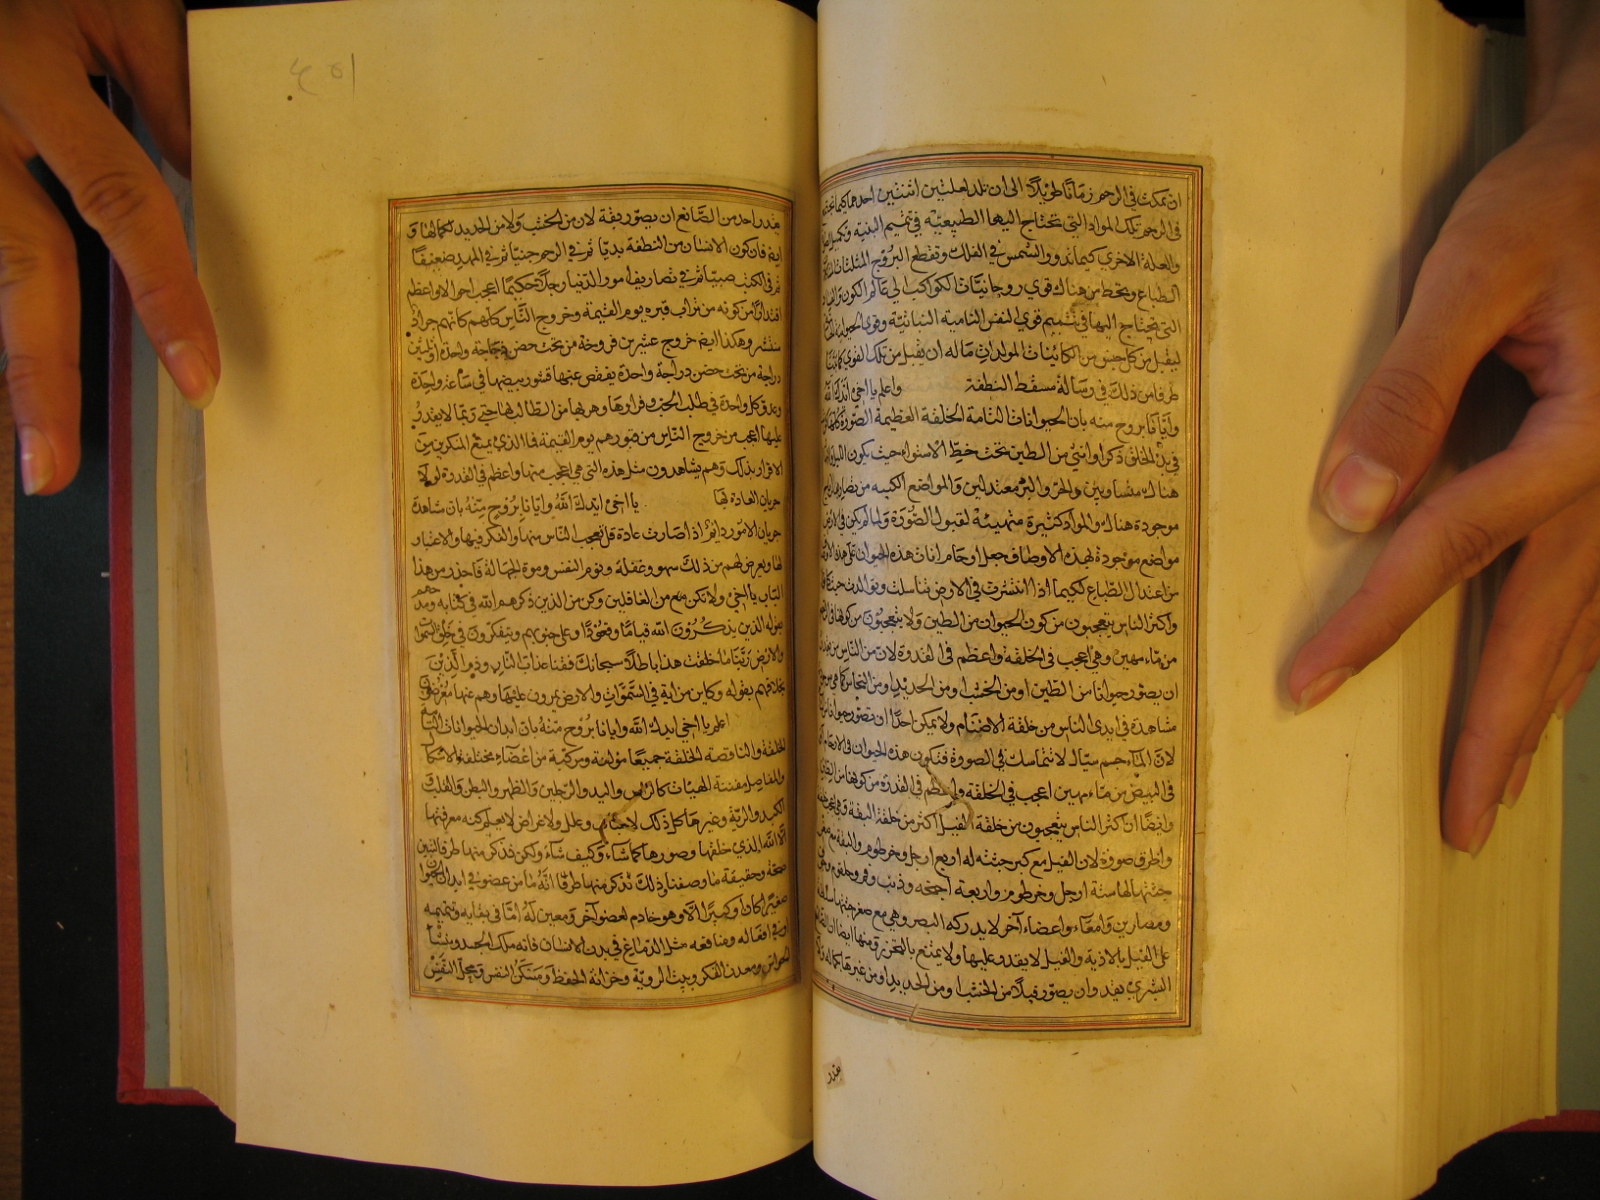 ان تمكث فى الرحم زمانا طويلا الى ان تلد لعلتين اثنتين احدهما كيما
فى الرحم تلك المواد التى تحتاج اليها الطبيعية فى تتميم البنية وتكميل
والعلة الاخرى كيما تدور الشمس فى الفلك وتقطع البروج المثلثات
الطباع وينحط من هناك قوى روحانيات الكواكب الى عالم الكون
التى تحتاج اليها فى تتميم قوى النفس النامية النباتية وقوى الحيوانية
ليقبل من كل جنس من الكائنات المولدات ماله ان يقبل من تلك القوى كما بينا
طرفا من ذلك فى رسالة مسقط النطفة واعلم يا اخى ايدك الله
وايانا بروح منه بان الحيوانات التامة الخلقة العظيمة الصورة كلها
فى بدء الخلق ذكرا وانثى من الطين تحت خط الاستواء حيث يكون الليل
هناك متساويين والحر والبرد معتدلين والمواضع الكنينة من تصاريف
موجودة هناك والمواد كثيرة متهيئة لقبول الصورة ولما لم يكن فى الارض
مواضع موجودة لهذه الاوصاف جعل ارحام اناث هذه الحيوان على هذه
من اعتدال الطباع لكيما اذا انتشرت فى الارض تناسلت وتوالدت حيث كانوا
واكثر الناس يتعجبون من كون الحيوان من الطين ولا يتعجبون من كونها فى
من ماء مهين وهى اعجب فى الخلقة واعظم فى القدرة لان من الناس من يقدر
ان يصور حيوانا من الطين او من الخشب او من الحديد او من النحاس كما هى
مشاهدة فى ايدى الناس من خلقة الاصنام ولا يمكن احدا ان يصور حيوانا من
لان الماء جسم سيال لا تتماسك فى الصورة فتكون هذه الحيوان فى الارحام
فى البيض من ماء مهين اعجب فى الخلقة واعظم فى القدرة من كونها من الطين
وايضا ان اكثر الناس يتعجبون من خلقة الفيل اكثر من خلقة البقة وهى اعجب
واظرف صورة لان الفيل مع كبر جثته له اربع ارجل وخرطوم والبقة مع صغر
جثتها لها ستة ارجل وخرطوم واربعة اجنحة وذنب وفم وحلقوم
ومصارين وامعاء واعضاء آخر لا يدركه البصر وهى مع صغر جثتها مسلطة
على الفيل بالاذية والفيل لا يقدر عليها ولا يمتنع بالتحرز منها وايضا ان الصانع
البشرى يقدر ان يصور فيلا من الخشب او من الحديد او من غيرها بكماله
يقدر
٤٥١
يقدر احد من الصناع ان يصور بقة لا من الخشب ولا من الحديد بكمالها و
ايضا فان كون الانسان من النطفة بديا ثم فى الرحم جنينا ثم فى المهد ضعيفا
ثم فى الكتب صبيا ثم فى تصاريف امور الدنيا رجلا حكيما اعجب احوالا واعظم
اقتدارا من كونه من تراب قبره يوم القيمة وخروج الناس كلهم كانهم جراد
منتشر وهكذا ايضا خروج عشرين فروخة من تحت حضن دجاجة واحدة او ثلثين
دراجة من تحت حضن دراجة واحدة يفقص عنها قشور بيضها فى ساعة واحدة
وعدو كل واحدة فى طلب الحب وفرارها وهربها من الطالب لها حتى ربما لا يقدر
عليها اعجب من خروج الناس من قبورهم يوم القيمة فما الذى يمنع المنكرين من
الاقرار بذلك وهم يشاهدون مثل هذه التى هى اعجب منها واعظم فى القدرة لولا
جريان العادة لها يا اخى ايدك الله وايانا بروح منه بان مشاهدة
جريان الامور دايما اذا صارت عادة قل تعجب الناس منها والفكر فيها والاعتبار
لها ويعرض لهم من ذلك سهو وغفلة ونوم النفس وموت الجهالة فاحذر من هذا
الباب يا اخى ولا تكن مع من الغافلين وكن من الذين ذكرهم الله فى كتابه ومدحهم
بقوله الذين يذكرون الله قياما وقعودا وعلى جنوبهم ويتفكرون فى خلق السموات
والارض ربنا ما خلقت هذا باطلا سبحانك فقنا عذاب النار وذم الذين
بخلافهم بقوله وكاين من اية فى السموات والارض يمرون عليها وهم عنها معرضون
اعلم يا اخى ايدك الله وايانا بروح منه بان ابدان الحيوانات التامة
الخلقة والناقصة الخلقة جميعا مؤلفة ومركبة من اعضاء مختلفة الاشكال
والمفاصل مفننة الهيئات كالراس واليد والرجلين والظهر والبطن والقلب
الكبد والرية وغيرها كل ذلك لاسباب وعلل واغراض لا يعلم كنه معرفتها
الا الله الذى خلقها وصورها كما شاء وكيف شاء ولكن نذكر منها طرفا لتبين
صحة وحقيقة ما وصفنا وذلك نذكر منها طرفا انه ما من عضو فى ابدان الحيوان
صغيرا كان او كبيرا الا وهو خادم لعضو آخر ومعين له اما فى بقايه وتتميمه
او فى افعاله ومنافعه مثل الدماغ فى بدن الانسان فانه ملك الجسد ومنشأ
الحواس ومعدن الفكر وبيت الروية وخزانة الحفظ ومسكن النفس ومحل النفس